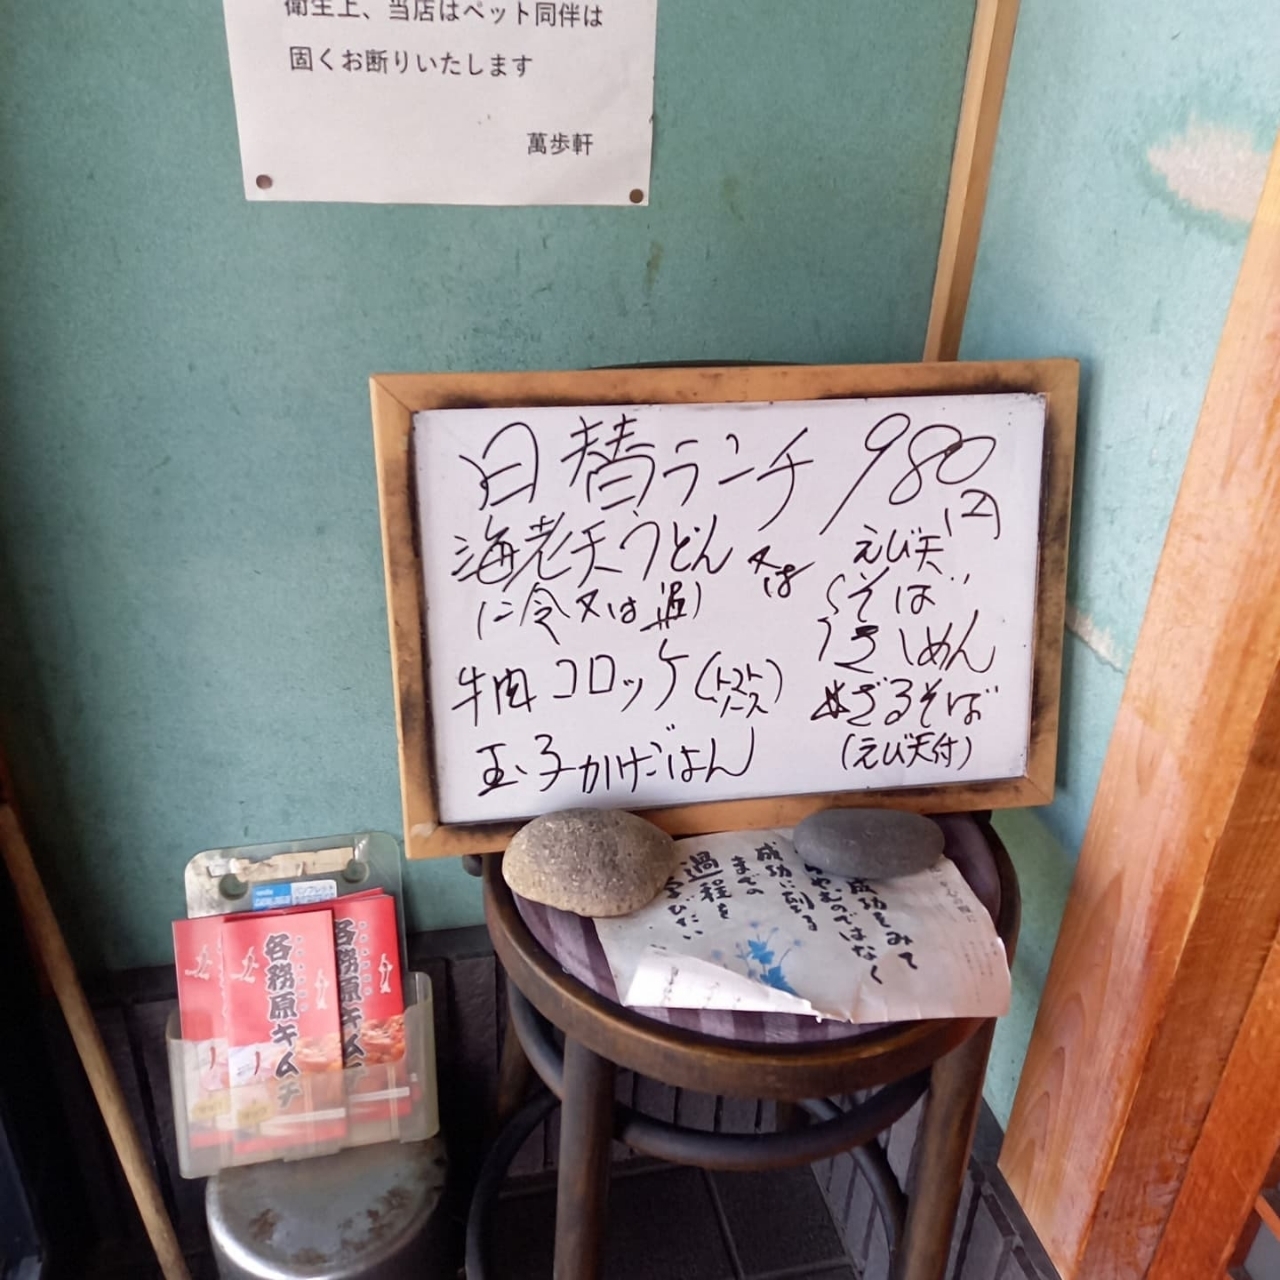 衛生上、当店はペット同伴は
固くお断りいたします
萬歩軒
日替ランチ 980円
海老天うどん 又は
(冷又は温)
牛肉コロッケ(トマトソース)
玉子かけごはん
えび天
そば
きしめん
ざるそば
(えび天付)
成功をみて
ではなく
成功に到る
までの
過程を
学びたい
各務原キムチ
各務原キムチ
パンフレット